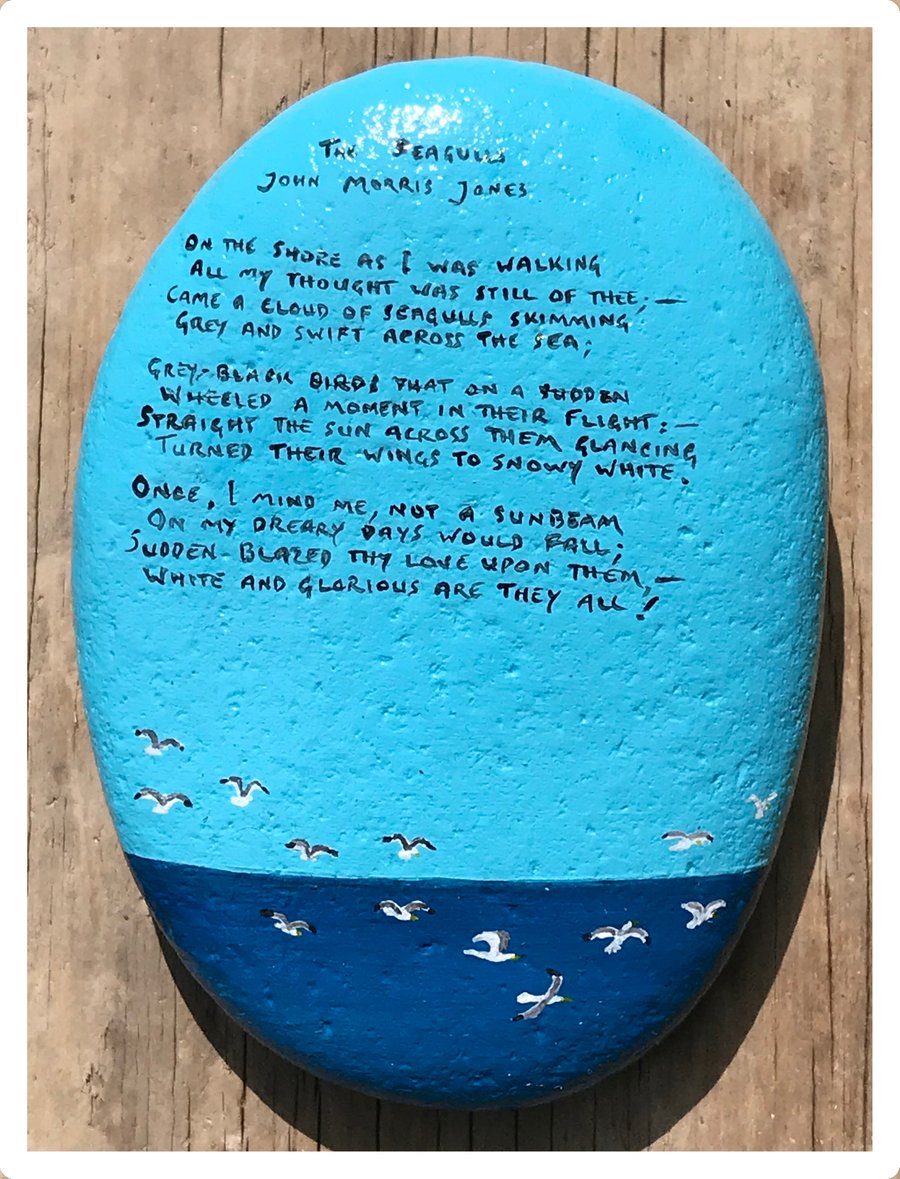 THE SEAGULLS
JOHN MORRIS JONES
ON THE SHORE AS I WAS WALKING
ALL MY THOUGHT WAS STILL OF THEE;—
CAME A CLOUD OF SEAGULLS SKIMMING
GREY AND SWIFT ACROSS THE SEA;
GREY-BLACK BIRDS THAT ON A SUDDEN
WHEELED A MOMENT IN THEIR FLIGHT:—
STRAIGHT THE SUN ACROSS THEM GLANCING
TURNED THEIR WINGS TO SNOWY WHITE.
ONCE, I MIND ME, NOT A SUNBEAM
ON MY DREARY DAYS WOULD FALL;
SUDDEN BLAZED THY LOVE UPON THEM,—
WHITE AND GLORIOUS ARE THEY ALL!